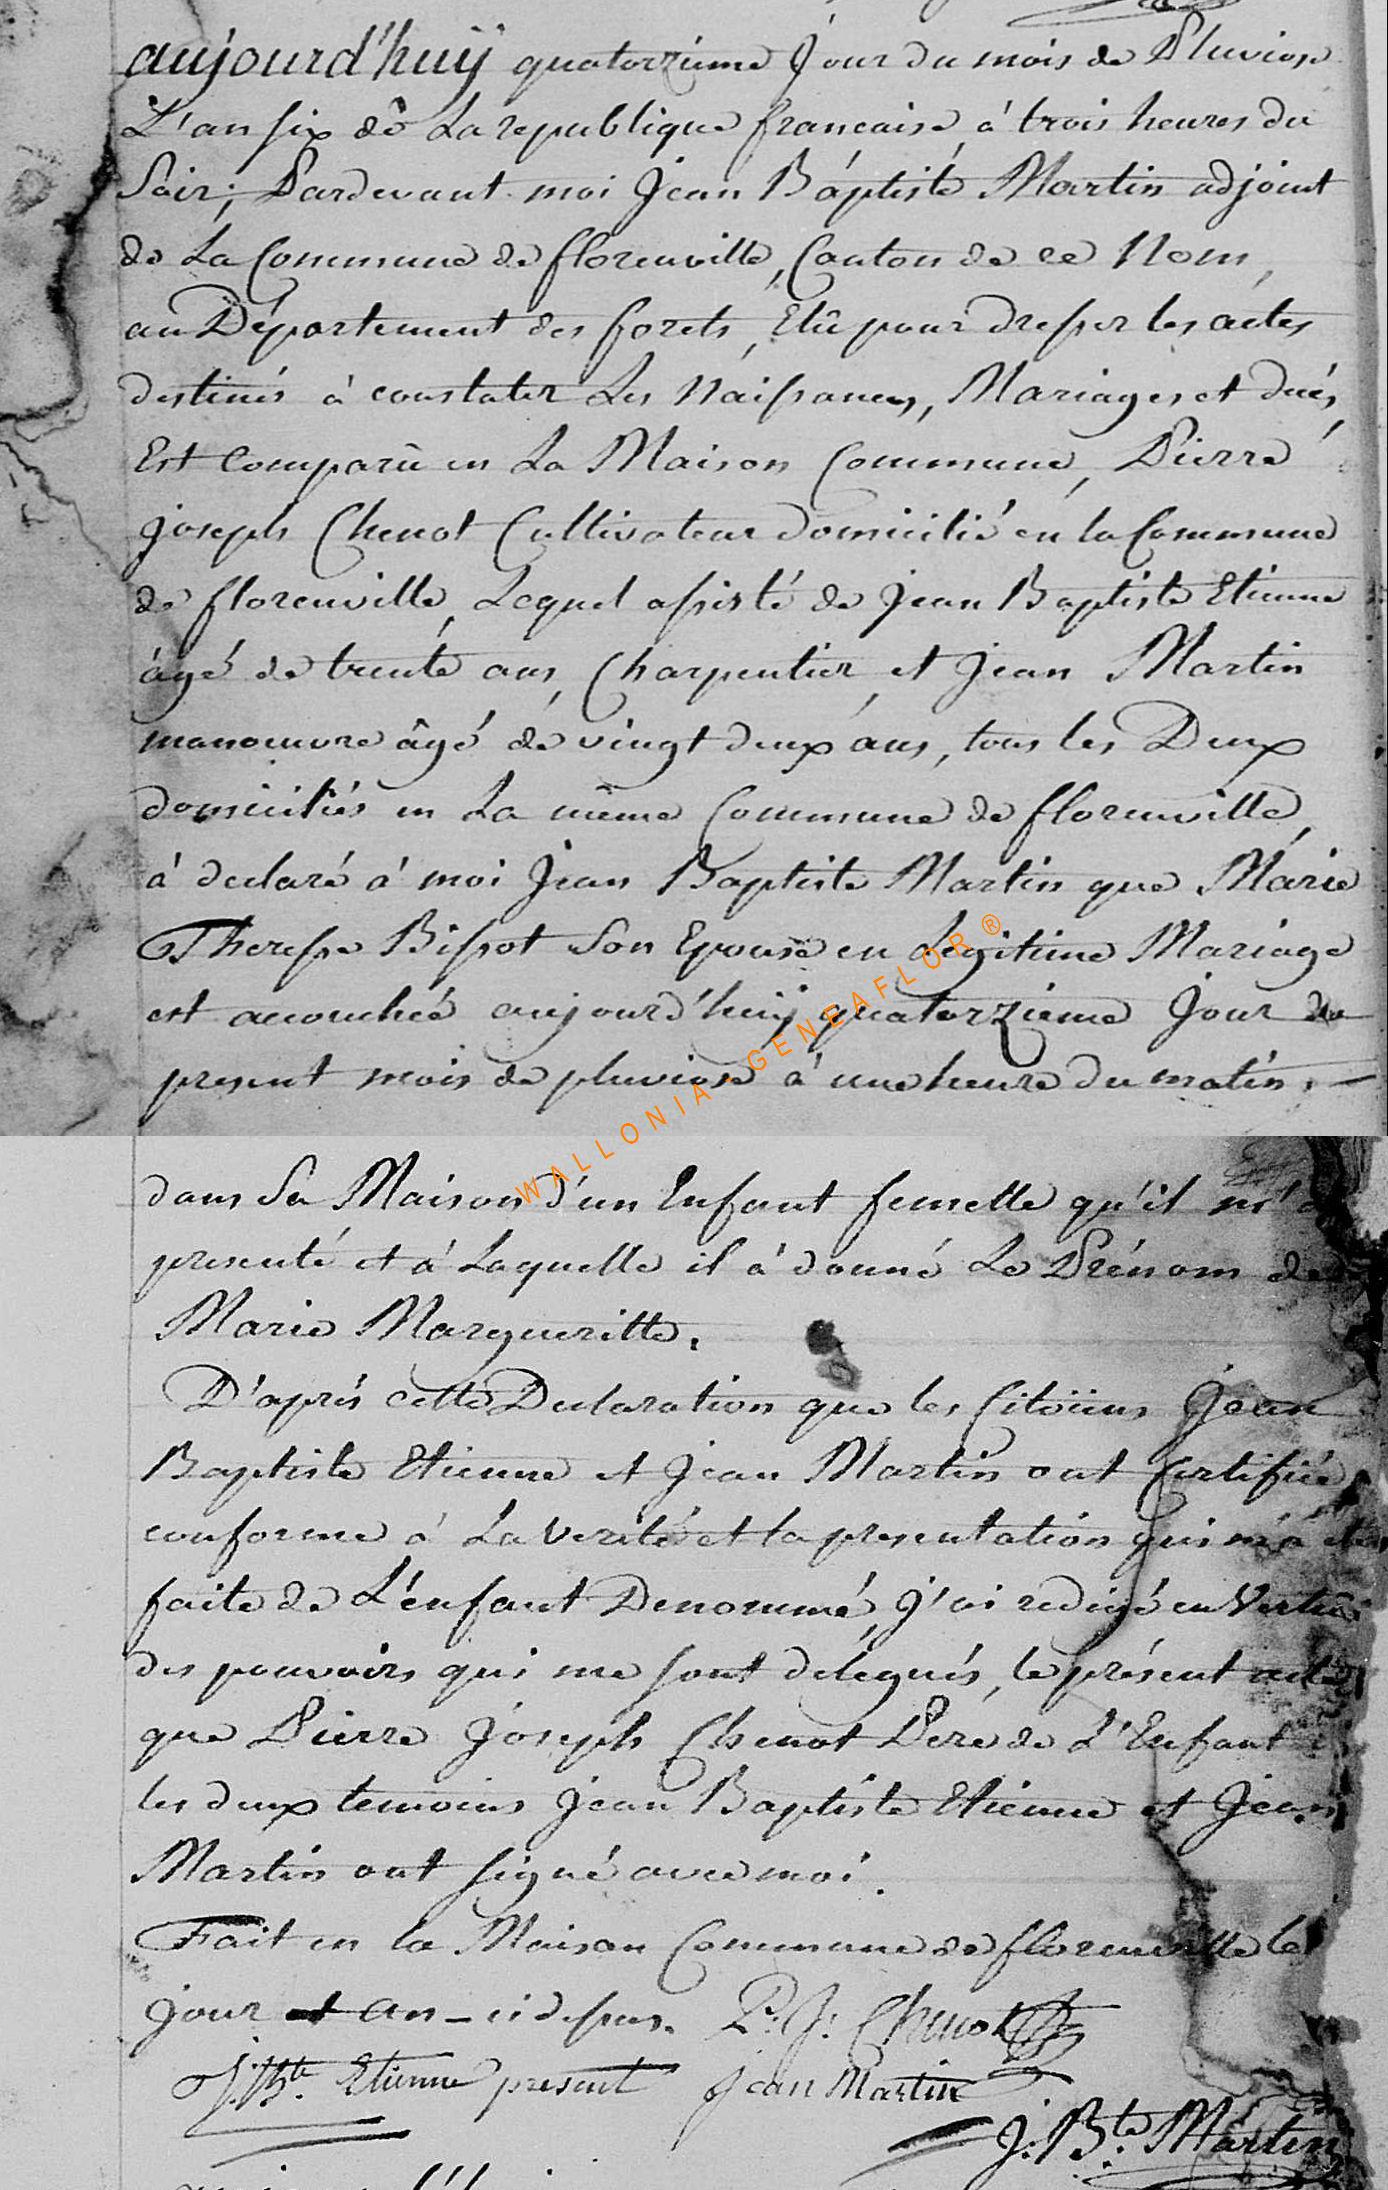 aujourd'huÿ quatorzieme Jour du mois de Pluviose
L'an six de La republique francaise, à trois heures du
Soir; Pardevant moi Jean Baptiste Martin adjoint
de La Commune de florenville, Canton de ce Nom,
au Département des forets, Elû pour dresser les actes
destinés à constater Les Naissances, Mariages et décés,
Est Comparû en La Maison Commune, Pierre
joseph Chenot Cultivateur domicilié en la Commune
de florenville, Lequel assisté de Jean Baptiste Etienne
âgé de trente ans, Charpentier, et Jean Martin
manoeuvre âgé de vingt deux ans, tous les Deux
domiciliés en La même Commune de florenville,
à declaré à moi Jean Baptiste Martin que Marie
Theresse Bissot Son Epouse en Legitime Mariage
est acouchée aujourd'huÿ quatorzieme Jour du
present mois de pluviose à une heure du matin.
dans Sa Maison d'un Enfant femelle qu'il m'a
presenté et à Laquelle il à donné Le Prénom de
Marie Margueritte.
D'aprés cette Declaration que les Citoïens Jean
Baptiste Etienne et Jean Martin ont Certifiée
conforme à La Verité et la presentation qui m'a été
faite de L'énfant Denommé, J'ai redigé en Vertu
des pouvoirs qui me sont délegués, le présent acte
que Pierre Joseph Chenot Pere de L'Enfant
les deux temoins Jean Baptiste Etienne et Jean
Martin ont signé avec moi.
Fait en la Maison Commune de florenville le
Jour et an ci dessus. P. J. Chenot
J. Bte. Etienne present Jean Martin
J. Bte. Martin
WALLONIA - GENEAFLOR ®